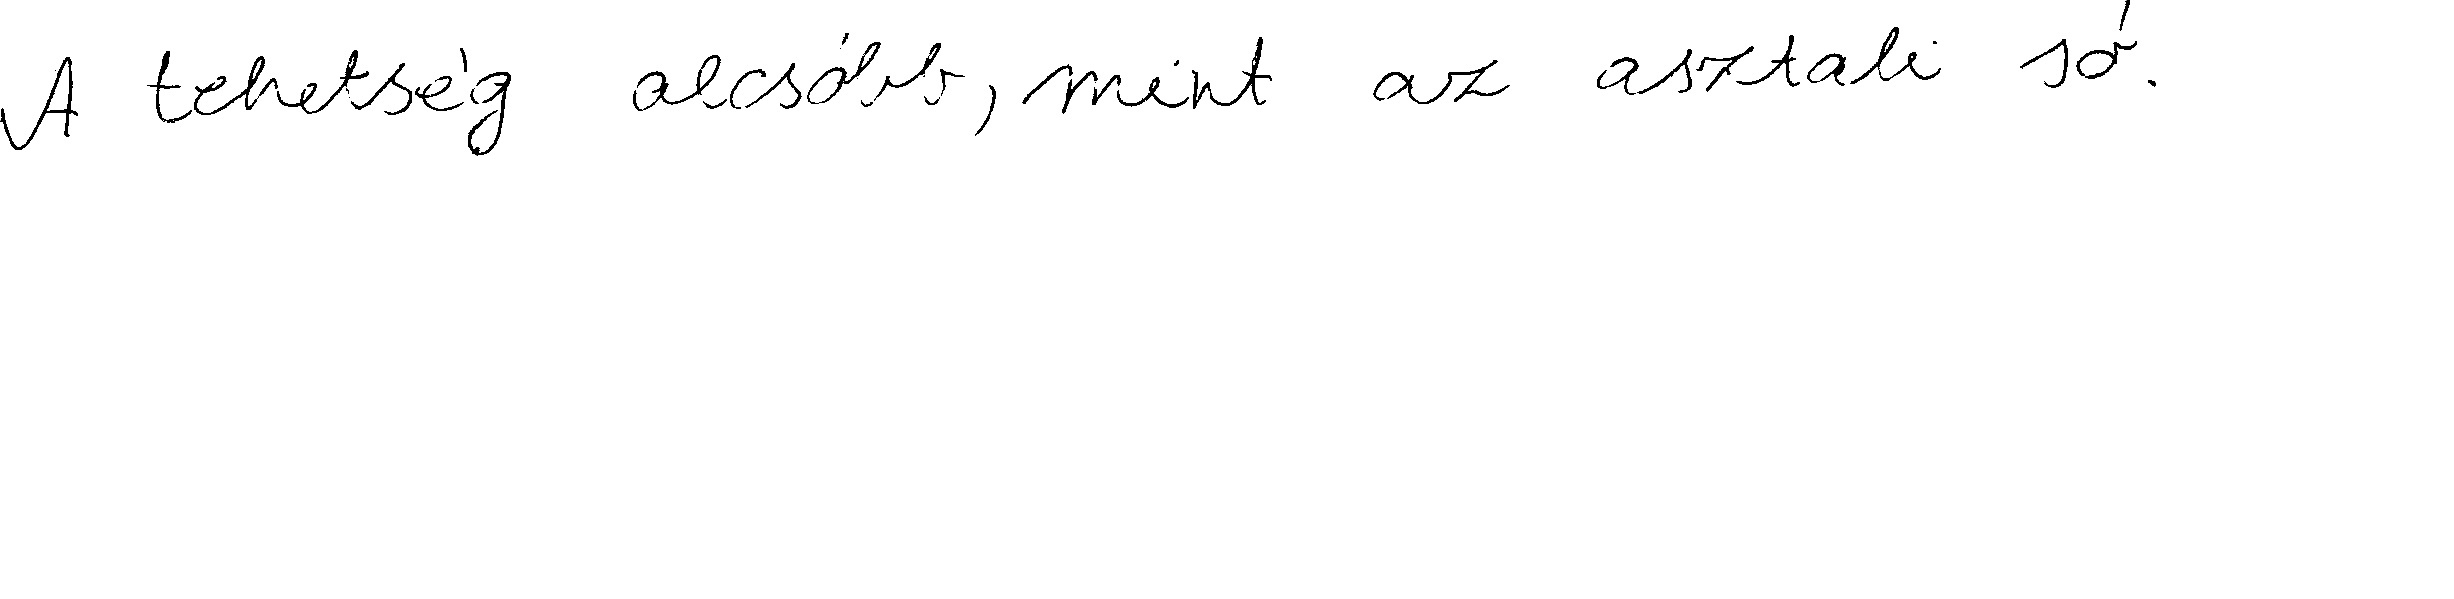 A tehetség alcsóbb, mint az asztali só.